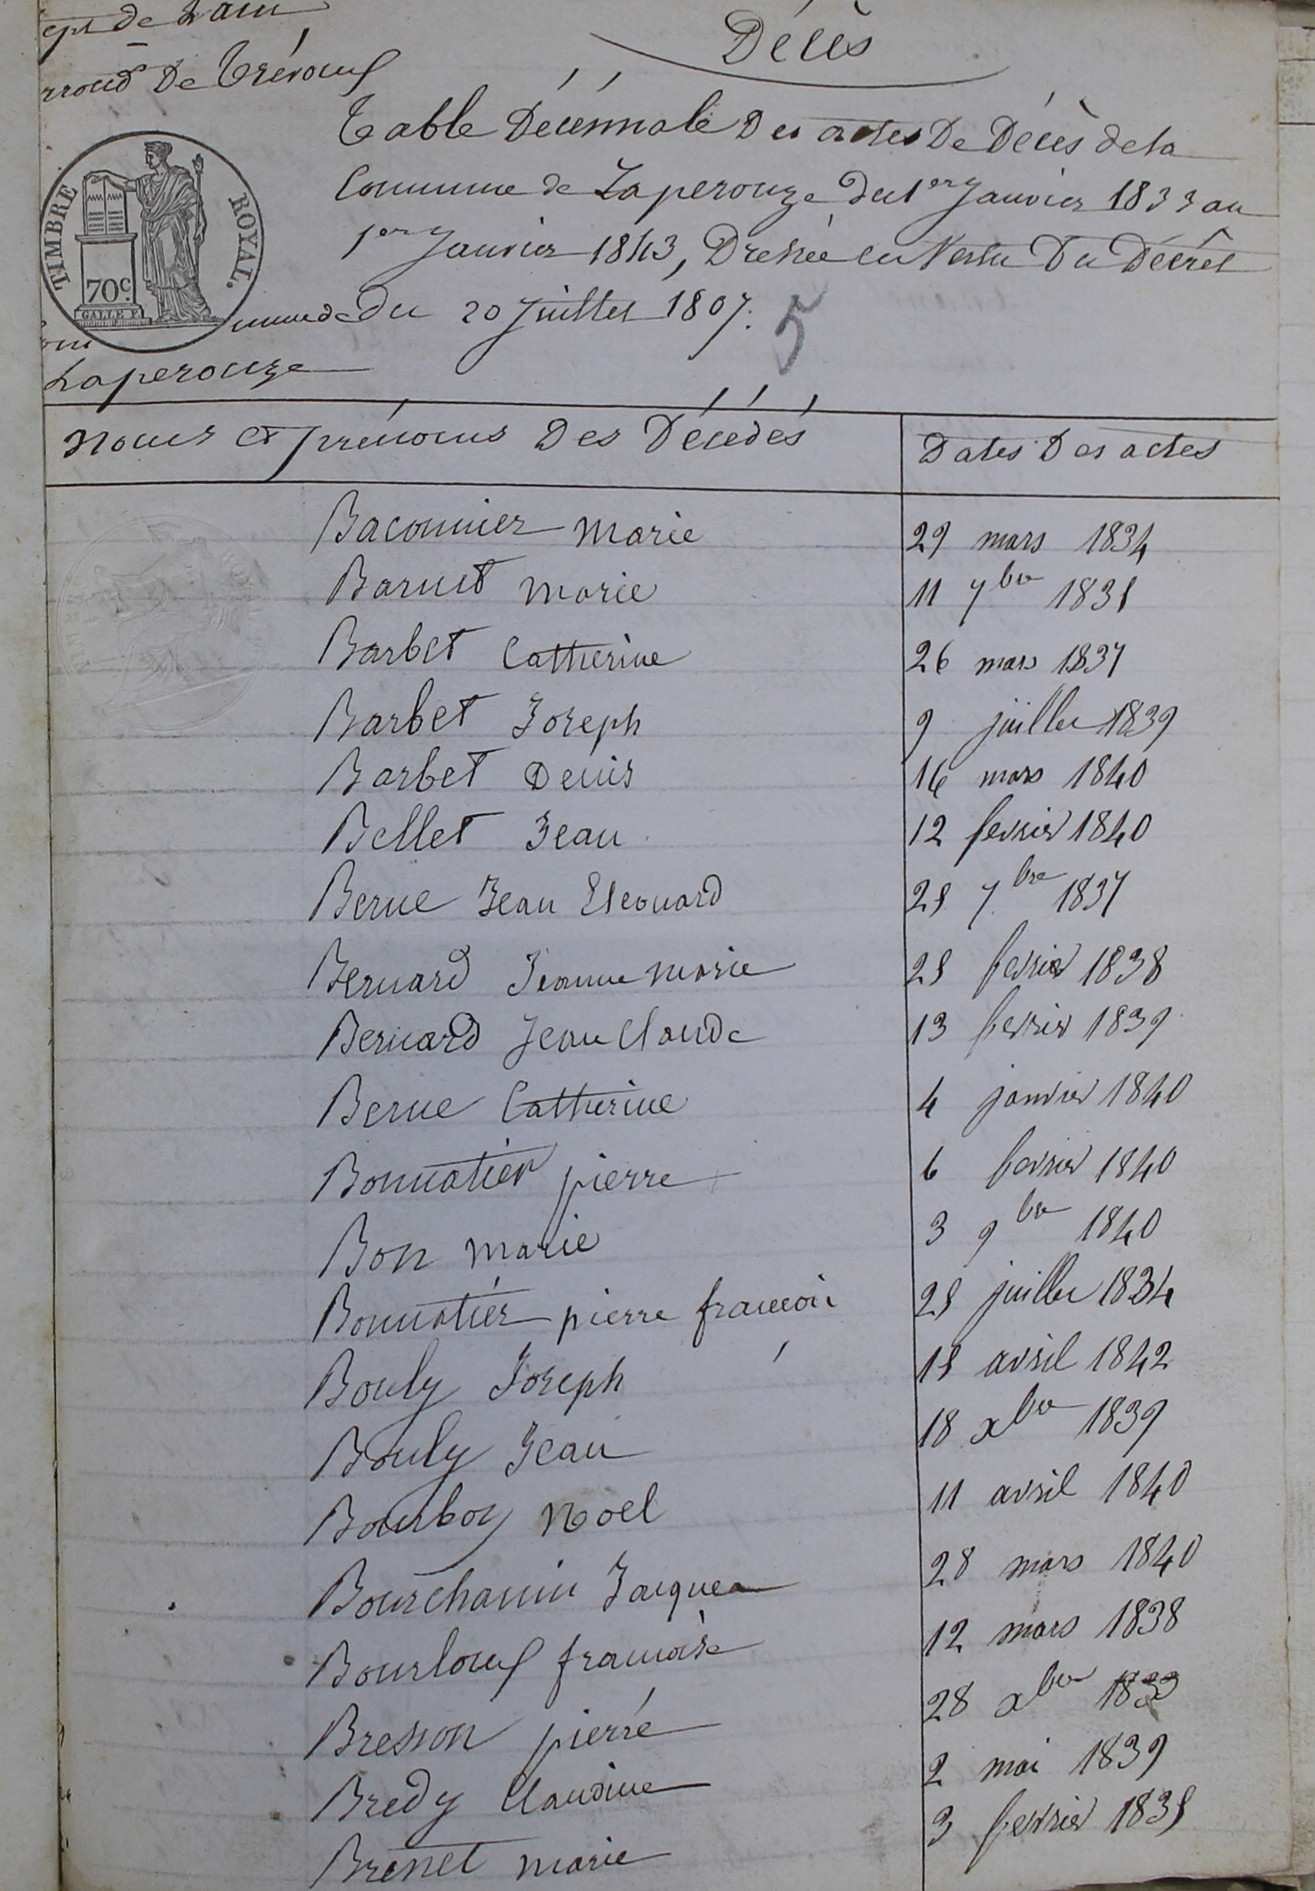 Décès
Dept de L'ain
arrond De Trévoux
Table Décennale Des actes De Décès de la
Commune de Laperouze du 1er Janvier 1833 au
1er Janvier 1843, Dressée en Vertu Du Décrêt
du 20 Juillet 1807.
5
TIMBRE ROYAL.
70c.
GALLE F.
Commune de
Laperouze
Noms et prénoms Des Décédés Dates Des actes
Baconnier Marie 29 mars 1834
Barnet Marie 11 7bre 1835
Barbet Catherine 26 mars 1837
Barbet Joseph 9 juillet 1839
Barbet Denis 16 mars 1840
Bellet Jean 12 fevrier 1840
Berne Jean Eleonard 25 7bre 1837
Bernard Jeanne Marie 25 fevrier 1838
Bernard Jean Claude 13 fevrier 1839
Berne Catherine 4 janvier 1840
Bonnatier pierre 6 fevrier 1840
Bon Marie 3 9bre 1840
Bonnatier pierre francois 25 juillet 1834
Bouly Joseph 15 avril 1842
Bouly Jean 18 xbre 1839
Bourbon Noël 11 avril 1840
Bourchanin Jacques 28 mars 1840
Bourloux francoise 12 mars 1838
Bresson pierre 28 xbre 1833
Bredy Claudine 2 mai 1839
Brenet Marie 3 fevrier 1835